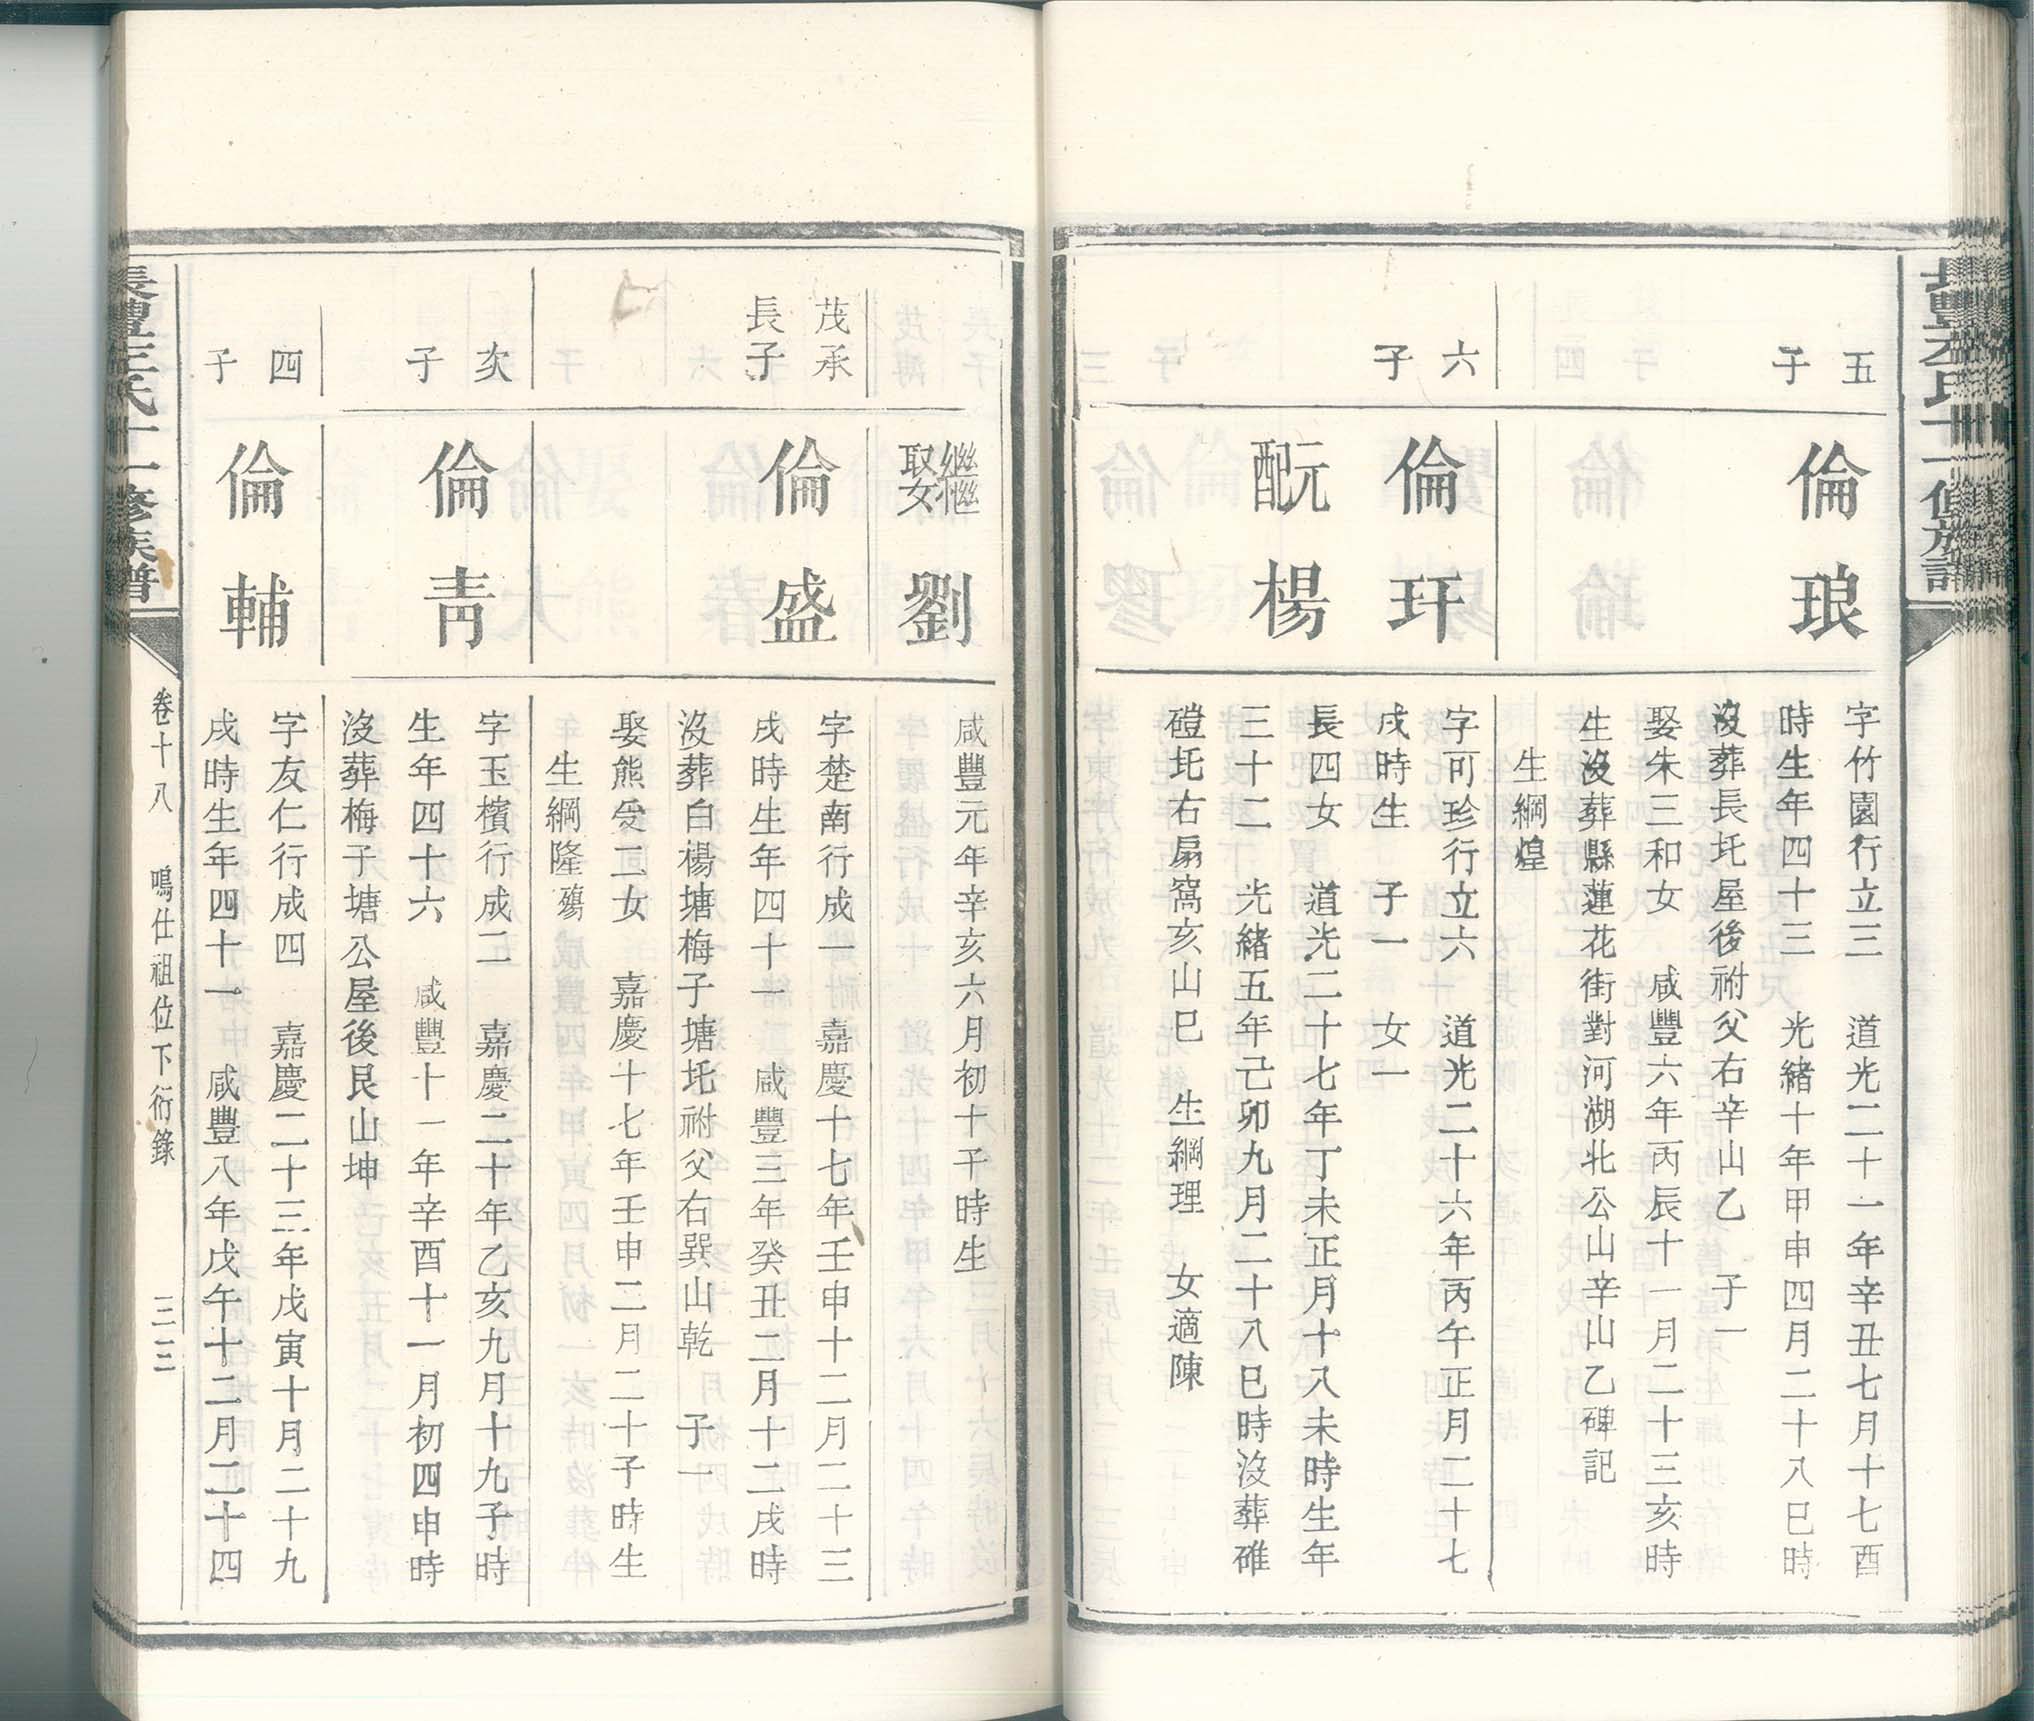 五
子
倫琅
字竹園行立三　道光二十一年辛丑七月十七酉
時生年四十三　光緒十年甲申四月二十八巳時
沒葬長圫屋後祔父右辛山乙　子一
娶朱三和女　咸豐六年丙辰十一月二十三亥時
生沒葬縣蓮花街對河湖北公山辛山乙碑記
生綱煌
六
子
倫玕
字可珍行立六　道光二十六年丙午正月二十七
戌時生　子一　女一
元配
楊
長四女　道光二十七年丁未正月十八未時生年
三十二　光緒五年己卯九月二十八巳時沒葬碓
磑圫右扇窩亥山巳　生綱理　女適陳
繼娶
劉
咸豐元年辛亥六月初十午時生
茂承
長子
倫盛
字楚南行成一　嘉慶十七年壬申十二月二十三
戌時生年四十一　咸豐三年癸丑二月十二戌時
沒葬白楊塘梅子塘圫祔父右巽山乾　子一
娶熊受二女　嘉慶十七年壬申二月二十子時生
生綱隆殤
次
子
倫青
字玉檳行成二　嘉慶二十年乙亥九月十九子時
生年四十六　咸豐十一年辛酉十一月初四申時
沒葬梅子塘公屋後艮山坤
四
子
倫輔
字友仁行成四　嘉慶二十三年戊寅十月二十九
戌時生年四十一　咸豐八年戊午十二月二十四
氏十一修族譜
卷十八　鳴仕祖位下衍錄　三三